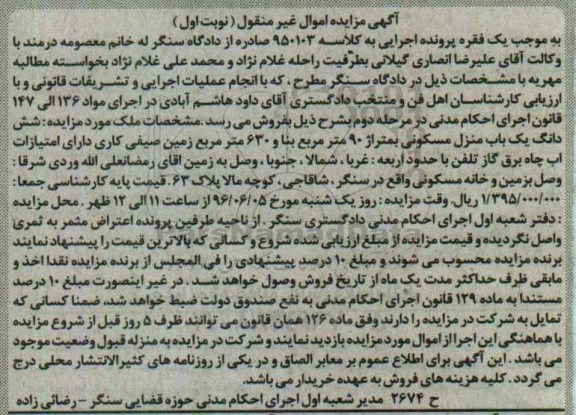 آگهی مزایده اموال غیر منقول (نوبت اول)
به موجب یک فقره پرونده اجرایی به کلاسه ۹۵۰۱۰۳ صادره از دادگاه سنگر له خانم معصومه درمند با
وکالت آقای علیرضا انصاری گیلانی بطرفیت راحله غلام نژاد و محمد علی غلام نژاد بخواسته مطالبه
مهریه با مشخصات ذیل در دادگاه سنگر مطرح ، که با انجام عملیات اجرایی و تشریفات قانونی و با
ارزیابی کارشناسان اهل فن و منتخب دادگستری آقای داود هاشم آبادی در اجرای مواد ۱۳۶ الی ۱۴۷
قانون اجرای احکام مدنی در مرحله دوم بشرح ذیل بفروش می رسد.مشخصات ملک مورد مزایده: شش
دانگ یک باب منزل مسکونی بمتراژ ۹۰ متر مربع بنا و ۶۳۰ متر مربع زمین صیفی کاری دارای امتیازات
اب چاه برق گاز تلفن با حدود اربعه : غربا ، شمالا ، جنوبا ، وصل به زمین اقای رمضانعلی الله وردی شرقا :
وصل بزمین و خانه مسکونی واقع در سنگر ، شاقاجی ، کوچه مالا پلاک ۶۳. قیمت پایه کارشناسی جمعا:
۱/۳۹۵/۰۰۰/۰۰۰ ریال. وقت مزایده : روز یک شنبه مورخ ۹۶/۰۶/۰۵ از ساعت ۱۱ الی ۱۲ ظهر . محل مزایده
: دفتر شعبه اول اجرای احکام مدنی دادگستری سنگر . از ناحیه طرفین پرونده اعتراض مثمر به ثمری
واصل نگردیده و قیمت مزایده از مبلغ ارزیابی شده شروع و کسانی که بالاترین قیمت را پیشنهاد نمایند
برنده مزایده محسوب می شوند و مبلغ ۱۰ درصد پیشنهادی را فی المجلس از برنده مزایده نقدا اخذ و
مابقی ظرف حداکثر مدت یک ماه از تاریخ فروش وصول خواهد شد . در غیر اینصورت مبلغ ۱۰ درصد
مستندا به ماده ۱۲۹ قانون اجرای احکام مدنی به نفع صندوق دولت ضبط خواهد شد، ضمنا کسانی که
تمایل به شرکت در مزایده را دارند وفق ماده ۱۲۶ همان قانون می توانند ظرف ۵ روز قبل از شروع مزایده
با هماهنگی این اجرا از اموال مورد مزایده بازدید نمایند و شرکت در مزایده به منزله قبول وضعیت موجود
می باشد . این آگهی برای اطلاع عموم بر معابر الصاق و در یکی از روزنامه های کثیرالانتشار محلی درج
می گردد . کلیه هزینه های فروش به عهده خریدار می باشد.
ح ۲۶۷۴ مدیر شعبه اول اجرای احکام مدنی حوزه قضایی سنگر – رضائی زاده